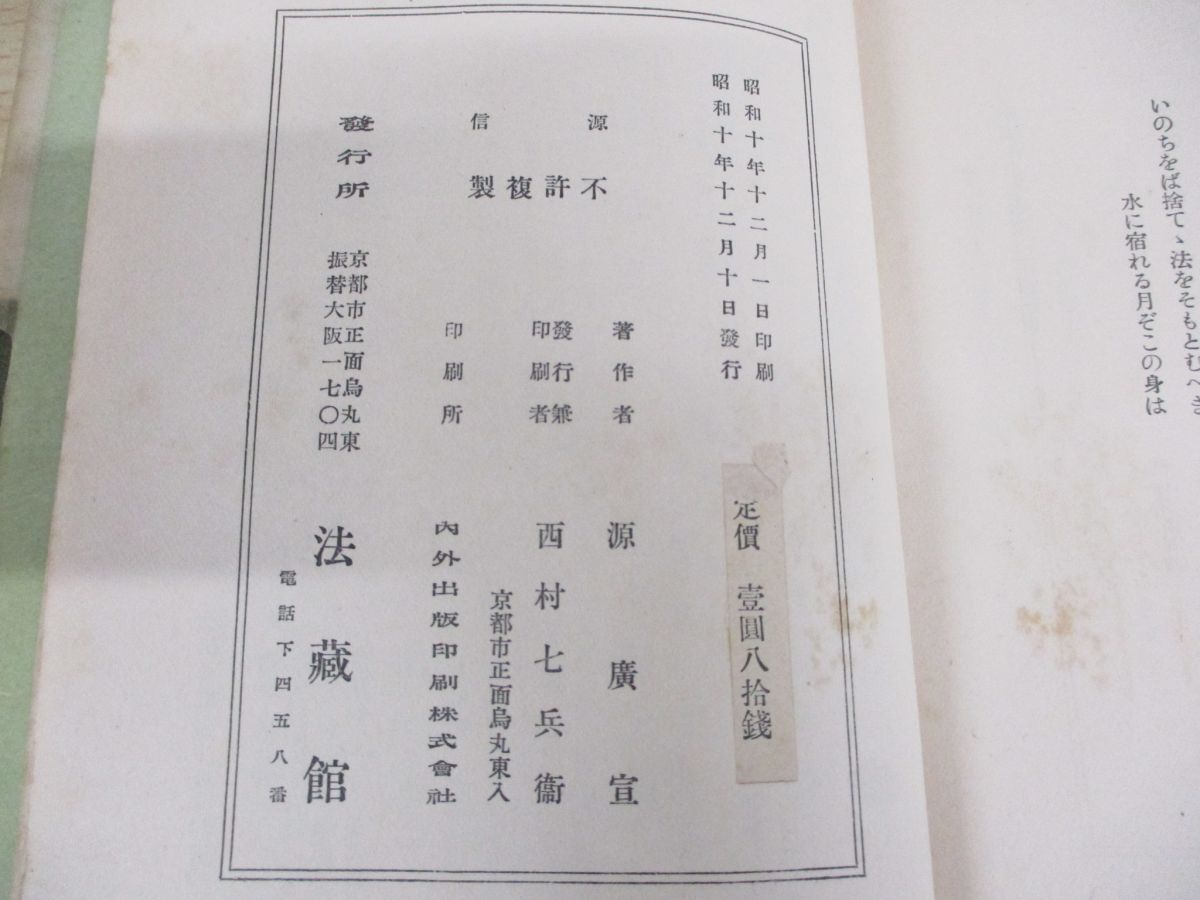 いのちをば捨てゝ法をそもとむべき
水に宿れる月ぞこの身は
昭和十年十二月一日印刷
昭和十年十二月十日發行
定價 壹圓八拾錢
源信
不許複製
著作者 源廣宣
發行兼
印刷者 西村七兵衞
京都市正面烏丸東入
印刷所 內外出版印刷株式會社
發行所 京都市正面烏丸東
振替大阪一七〇四
法藏館
電話下四五八番